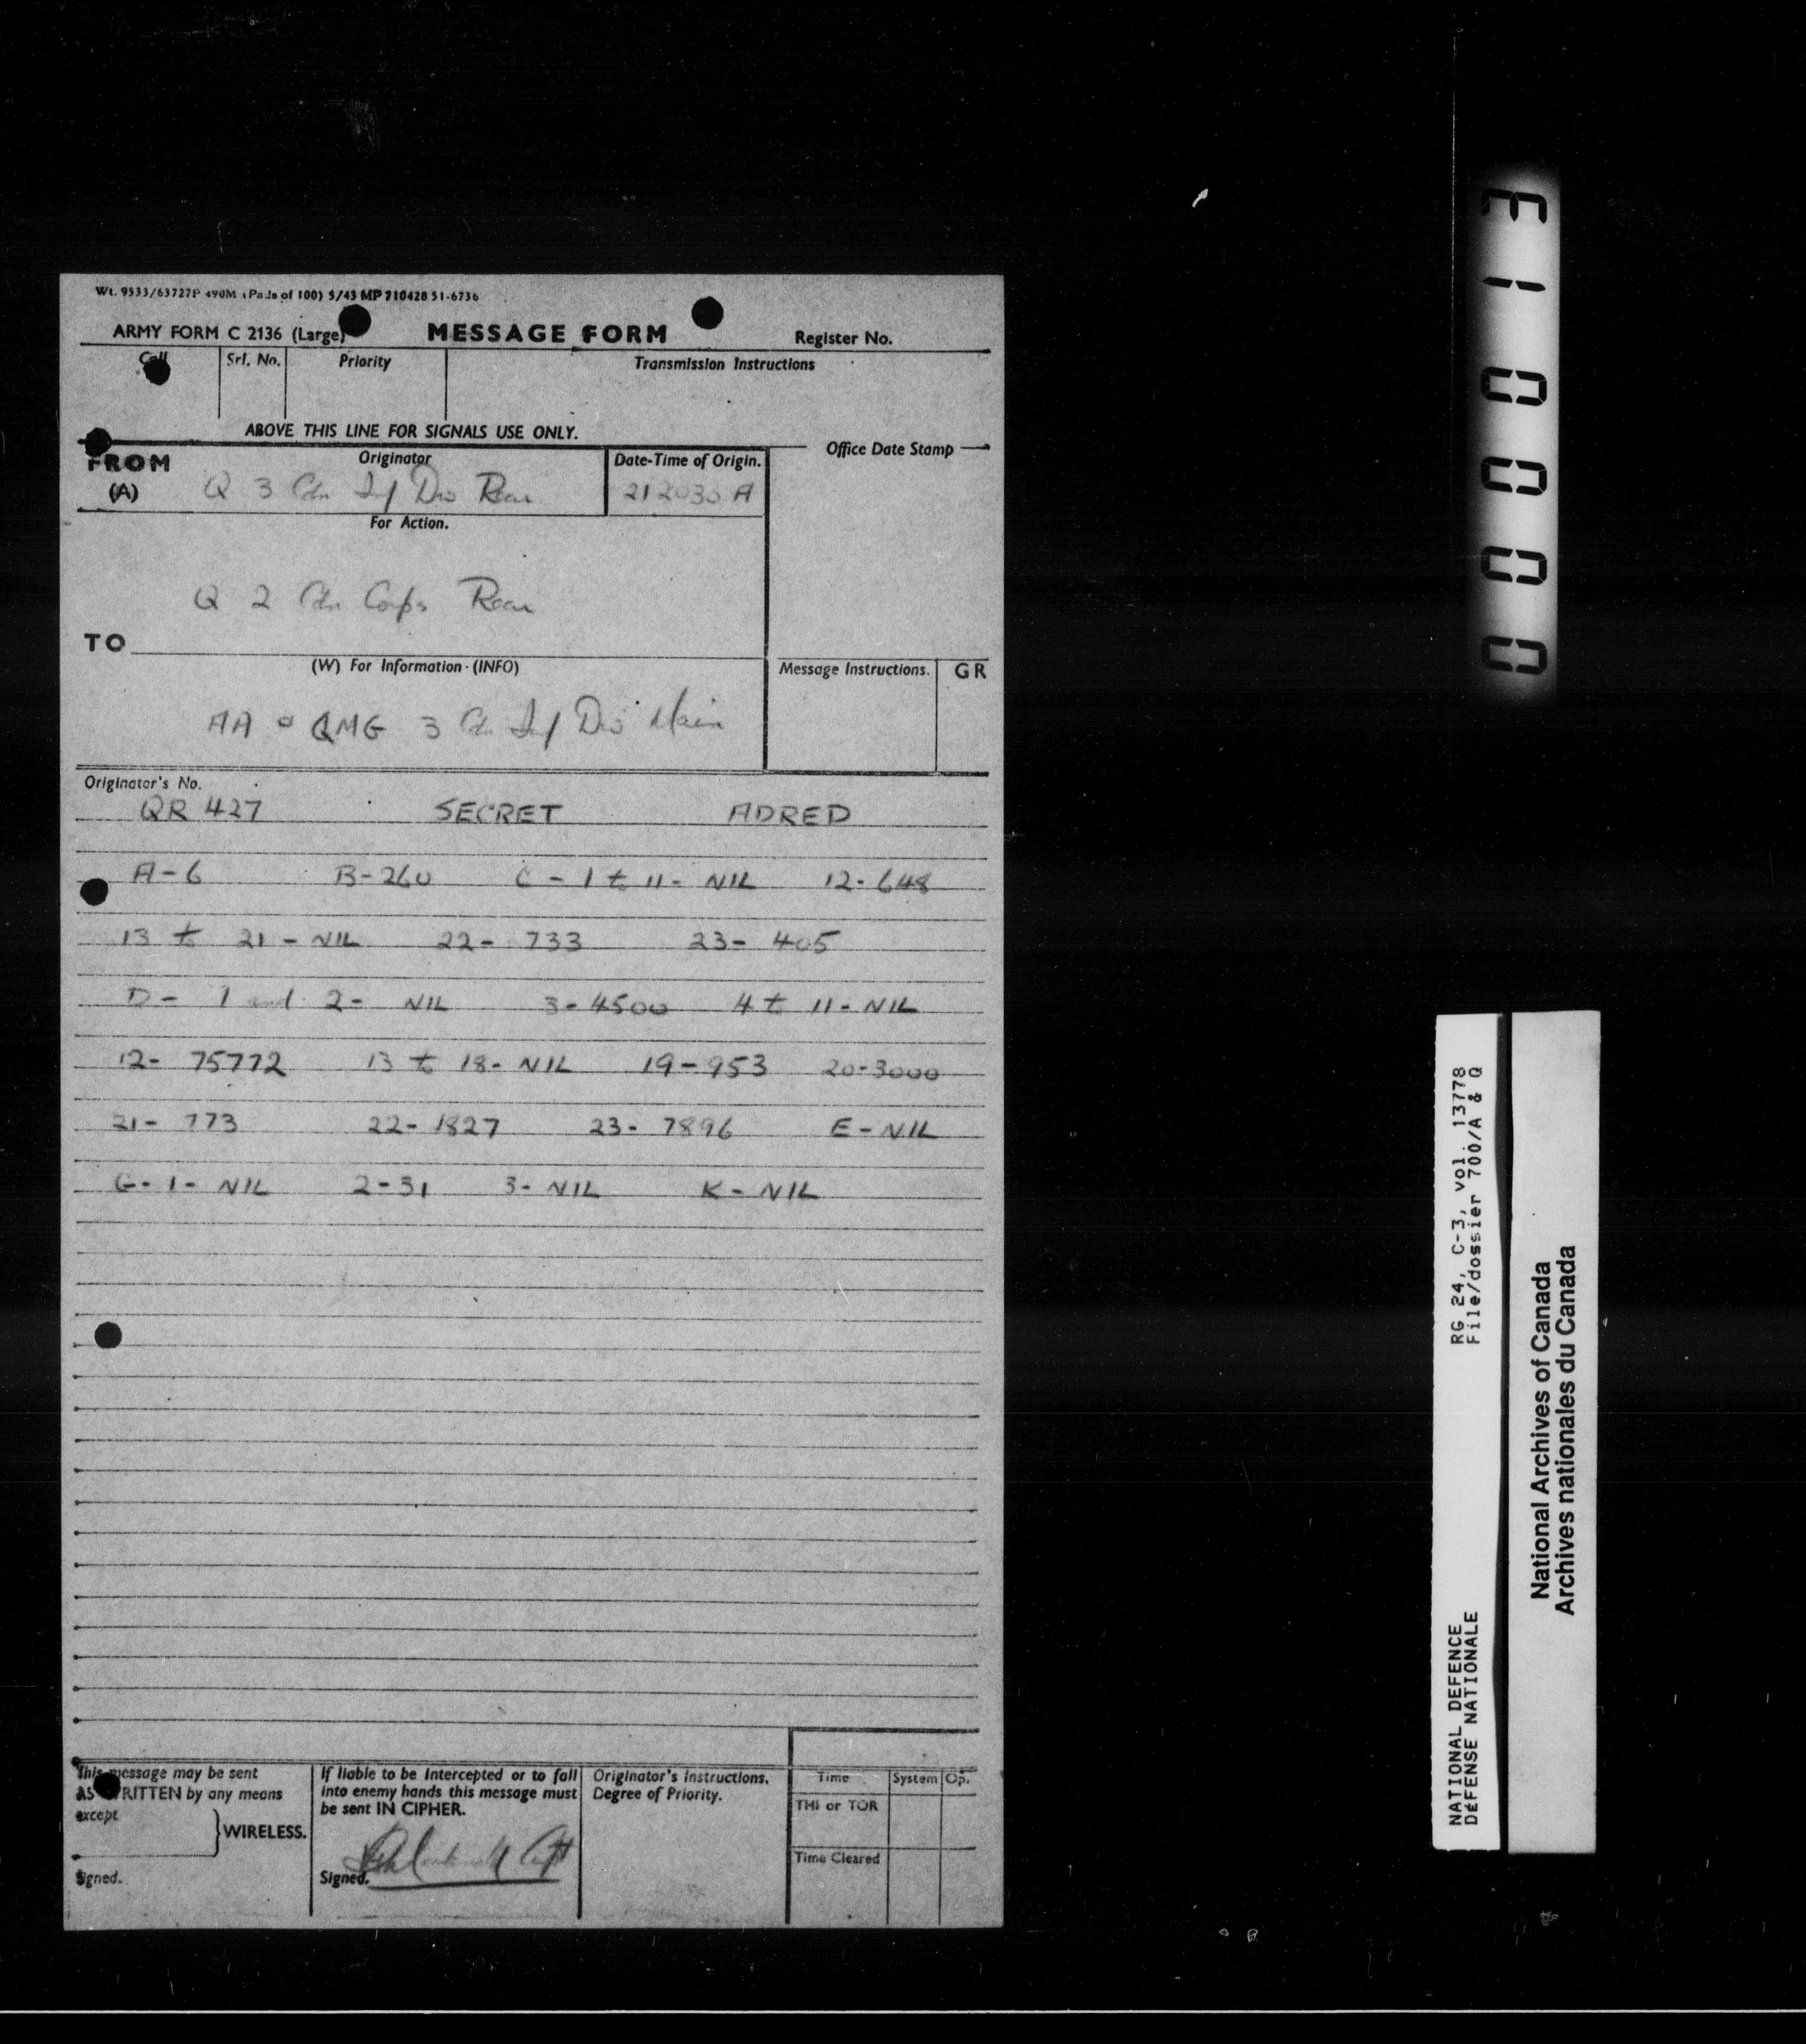 Wt. 9533/63727P 490M (Pads of 100) 5/43 MP 710428 51-6736
ARMY FORM C 2136 (Large) MESSAGE FORM Register No.
Call Srl. No. Priority Transmission Instructions
ABOVE THIS LINE FOR SIGNALS USE ONLY.
Office Date Stamp
FROM Originator Date-Time of Origin.
(A) Q 3 Cdn Inf Div Rear 212030 A
For Action.
Q 2 Cdn Corps Rear
TO
(W) For Information (INFO) Message Instructions. GR
AA & QMG 3 Cdn Inf Div Main
Originator's No.
QR 427 SECRET ADRED
A-6 B-260 C - 1 to 11- NIL 12-648
13 to 21 - NIL 22- 733 23- 405
D- 1 and 2- NIL 3-4500 4 to 11-NIL
12- 75772 13 to 18- NIL 19-953 20-3000
21- 773 22-1827 23- 7896 E-NIL
G-1- NIL 2-31 3- NIL K- NIL
This message may be sent
AS WRITTEN by any means
except
WIRELESS.
Signed.
If liable to be intercepted or to fall
into enemy hands this message must
be sent IN CIPHER.
Signed. Capt
Originator's Instructions.
Degree of Priority.
Time System Op.
THI or TOR
Time Cleared
000013
RG 24, C-3, vol. 13778
File/dossier 700/A & Q
NATIONAL DEFENCE
DÉFENSE NATIONALE
National Archives of Canada
Archives nationales du Canada